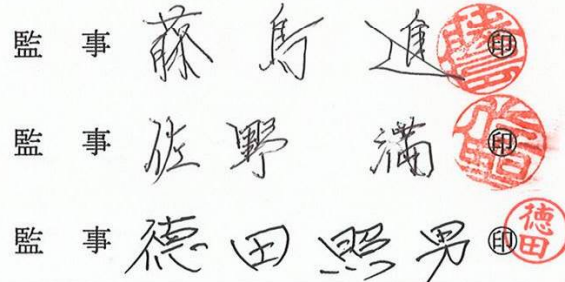 監事 藤島進 ㊞
監事 佐野満 ㊞
監事 徳田照男 ㊞ 徳田